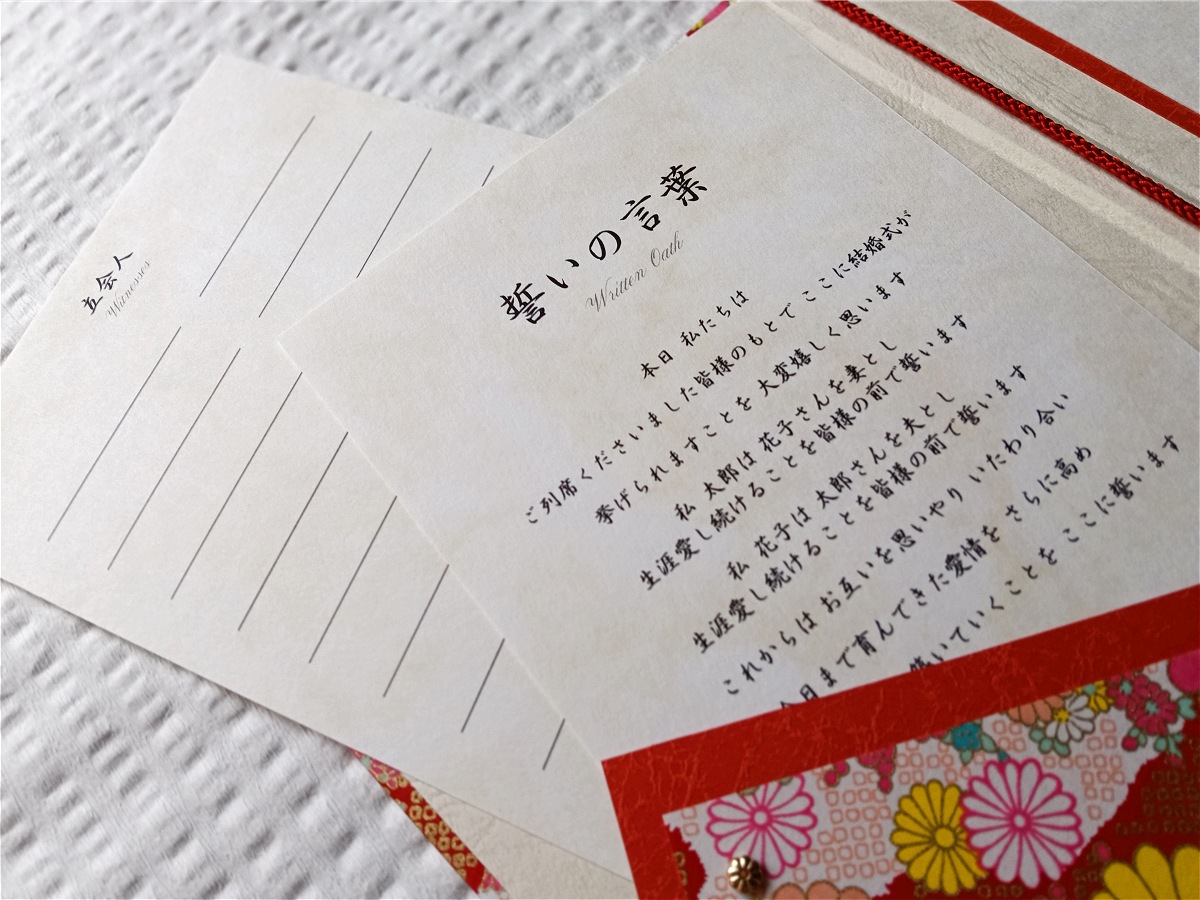 立会人
Witnesses
誓いの言葉
Written Oath
本日 私たちは
ご列席くださいました皆様のもとで ここに結婚式が
挙げられますことを 大変嬉しく思います
私 太郎は 花子さんを妻とし
生涯愛し続けることを皆様の前で誓います
私 花子は 太郎さんを夫とし
生涯愛し続けることを皆様の前で誓います
これからは お互いを思いやり いたわり合い
今日まで育んできた愛情を さらに高め
築いていくことを ここに誓います